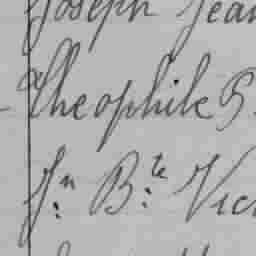 Joseph Jean
Theophile S
Jn Bte Vic